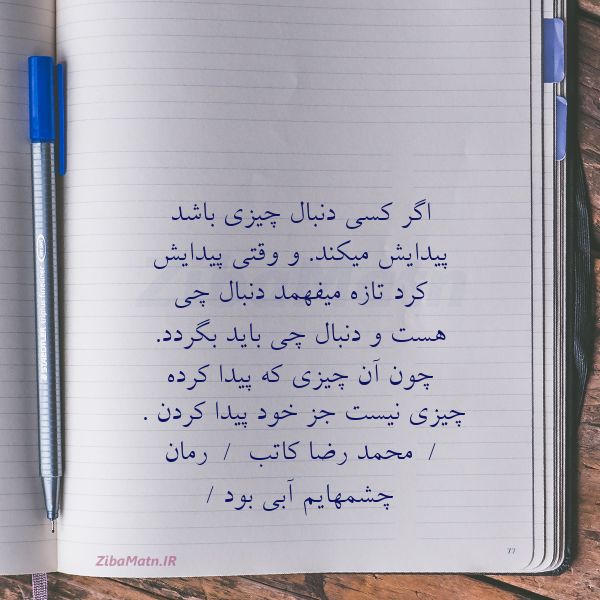 اگر کسی دنبال چیزی باشد
پیدایش میکند. و وقتی پیدایش
کرد تازه میفهمد دنبال چی
هست و دنبال چی باید بگردد.
چون آن چیزی که پیدا کرده
چیزی نیست جز خود پیدا کردن .
/ محمد رضا کاتب / رمان
چشمهایم آبی بود /
ZibaMatn.IR
77